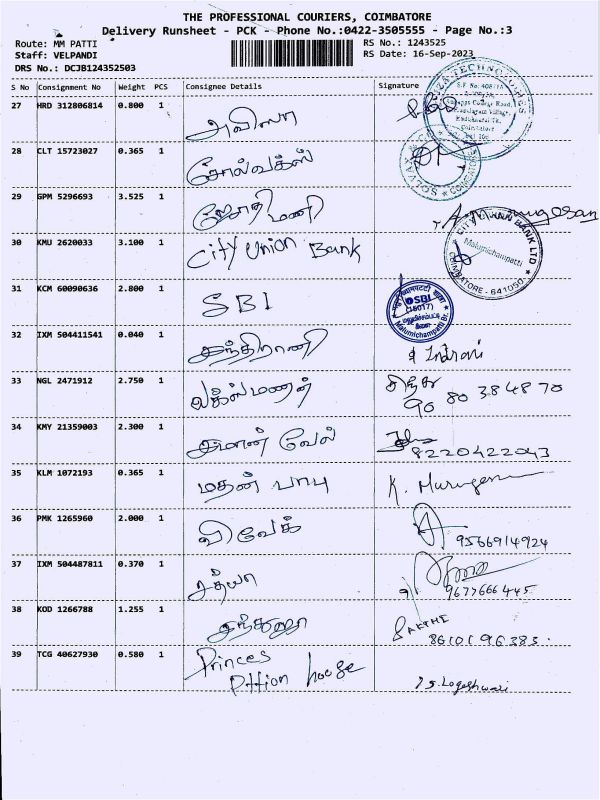 THE PROFESSIONAL COURIERS, COIMBATORE
Delivery Runsheet - PCK - Phone No.:0422-3505555 - Page No.:3
Route: MM PATTI
RS No.: 1243525
Staff: VELPANDI
RS Date: 16-Sep-2023
DRS No.: DCJB124352503
S No Consignment No Weight PCS Consignee Details Signature
27 HRD 312806814 0.800 1
28 CLT 15723027 0.365 1 சோல்வக்ஸ்
29 GPM 5296693 3.525 1 ஜோதி மணி
30 KMU 2620033 3.100 1 City Union Bank
CITY UNION BANK LTD
Malumichampatti
COIMBATORE - 641050.
31 KCM 60090636 2.800 1 SBI
SBI
(16017)
Malumichampatti Br.
32 IXM 504411541 0.040 1 இந்திராணி Indrani
33 NGL 2471912 2.750 1 லக்ஸ்மணன்
90 80 384870
34 KMY 21359003 2.300 1 வேல்
8220422043
35 KLM 1072193 0.365 1 மதன் பாபு K. Murugesan
36 PMK 1265960 2.000 1 விவேக்
9566914924
37 IXM 504487811 0.370 1 சத்யா
9677666445
38 KOD 1266788 1.255 1
8610196383.
39 TCG 40627930 0.580 1 Princes
house
S. Logeshwari